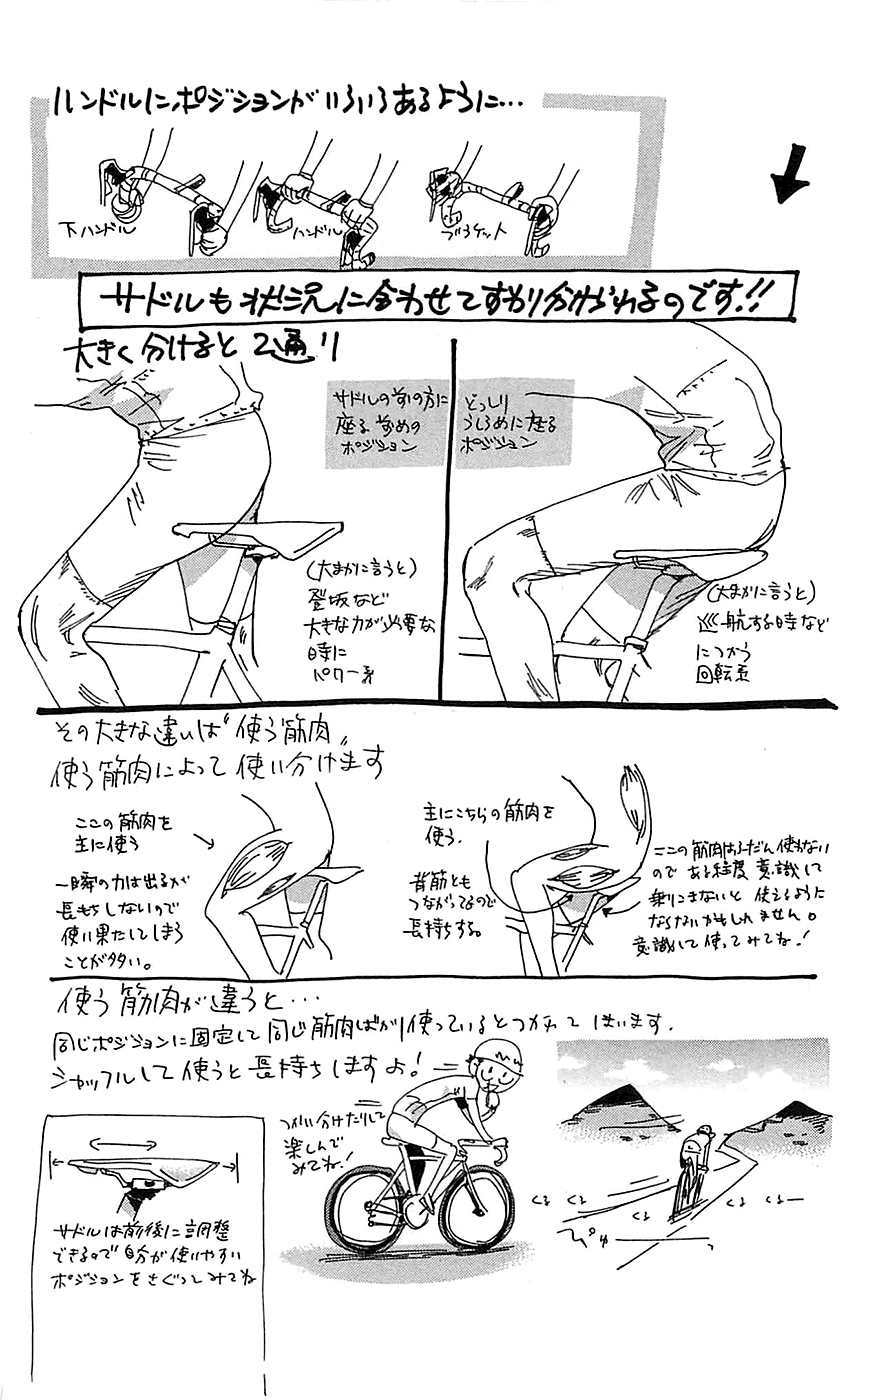 ハンドルにポジションがいろいろあるように…
下ハンドル
ハンドル
ブラケット
サドルも状況に合わせてすわり分けられるのです!!
大きく分けると2通り
サドルの前の方に
座る前めの
ポジション
どっしり
うしろめに座る
ポジション
(大まかに言うと)
登坂など
大きな力が必要な
時に
パワー系
(大まかに言うと)
巡航する時など
につかう
回転系
その大きな違いは“使う筋肉”
使う筋肉によって使い分けます
ここの筋肉を
主に使う
一瞬の力は出るが
長もちしないので
使い果たしてしまう
ことが多い。
主にこちらの筋肉を
使う.
背筋とも
つながってるので
長持ちする。
ここの筋肉はふだん使わない
のである程度意識して
乗りこまないと使えるように
ならないかもしれません。
意識して使ってみてね!
使う筋肉が違うと…
同じポジションに固定して同じ筋肉ばかり使っているとつかれてしまいます.
シャッフルして使うと長持ちしますよ!
つかい分けたりして
楽しんで
みてね!
サドルは前後に調整
できるので自分が使いやすい
ポジションをさぐってみてね
くる くる
くる
くる くる